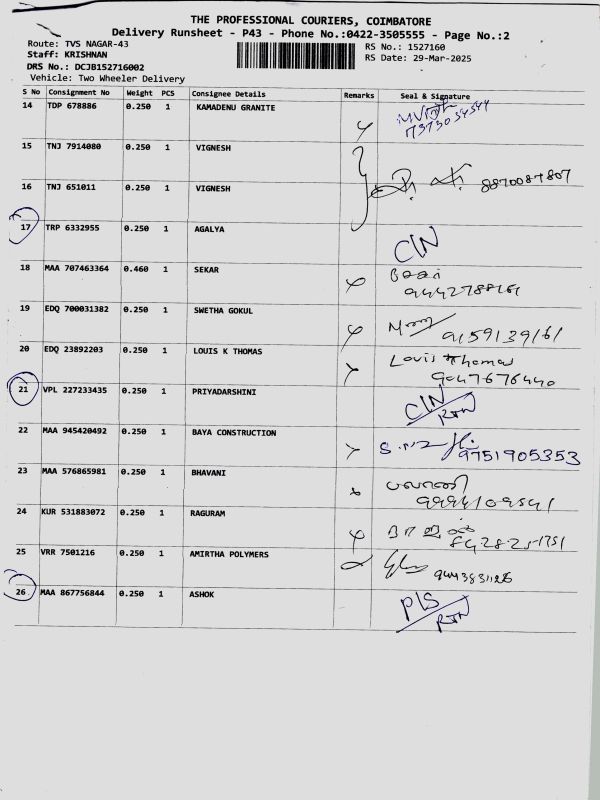 THE PROFESSIONAL COURIERS, COIMBATORE
Delivery Runsheet - P43 - Phone No.:0422-3505555 - Page No.:2
Route: TVS NAGAR-43 RS No.: 1527160
Staff: KRISHNAN RS Date: 29-Mar-2025
DRS No.: DCJB152716002
Vehicle: Two Wheeler Delivery
S No Consignment No Weight PCS Consignee Details Remarks Seal & Signature
14 TDP 678886 0.250 1 KAMADENU GRANITE
15 TNJ 7914080 0.250 1 VIGNESH
16 TNJ 651011 0.250 1 VIGNESH 8870087807
17 TRP 6332955 0.250 1 AGALYA CIN
18 MAA 707463364 0.460 1 SEKAR
19 EDQ 700031382 0.250 1 SWETHA GOKUL 9159139161
20 EDQ 23892203 0.250 1 LOUIS K THOMAS Louis Thomas
9047676440
21 VPL 227233435 0.250 1 PRIYADARSHINI CIN
RTN
22 MAA 945420492 0.250 1 BAYA CONSTRUCTION 9751905353
23 MAA 576865981 0.250 1 BHAVANI
24 KUR 531883072 0.250 1 RAGURAM
25 VRR 7501216 0.250 1 AMIRTHA POLYMERS
26 MAA 867756844 0.250 1 ASHOK P1S
RTN